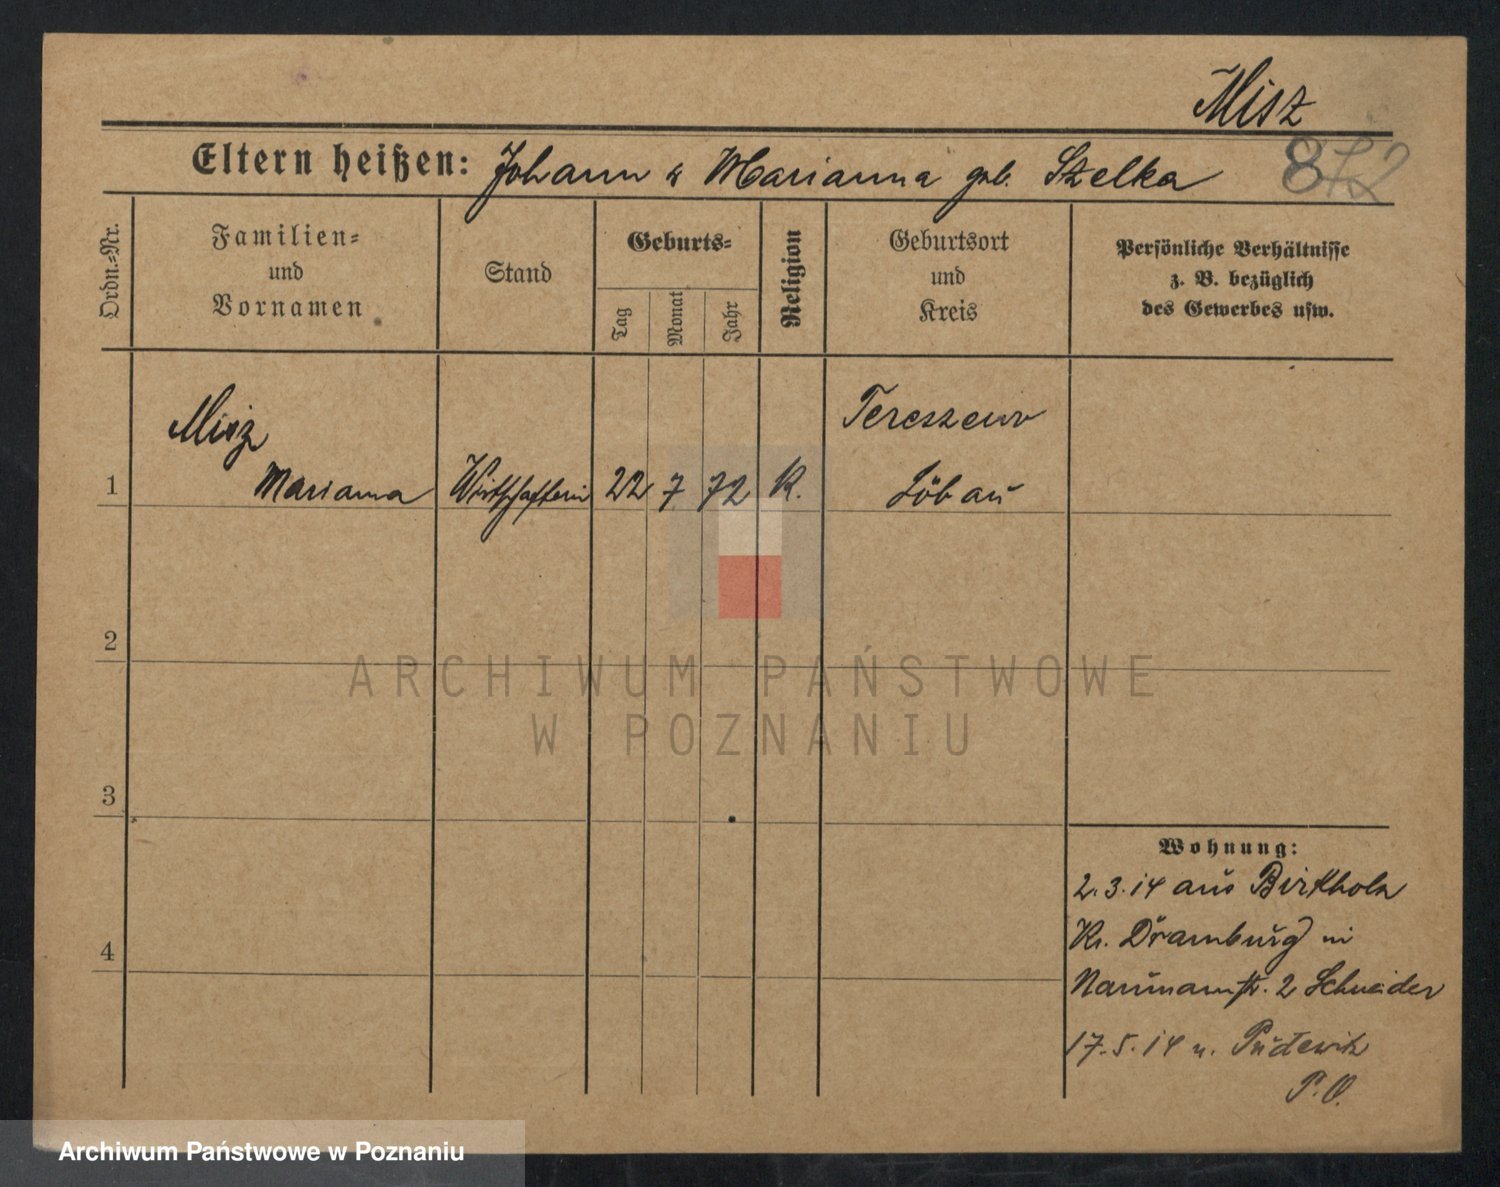 Misz
Eltern heißen: Johann u Marianna geb. Szelka 872
Ordn.-Nr.
Familien-
und
Vornamen
Stand
Geburts-
Tag
Monat
Jahr
Religion
Geburtsort
und
Kreis
Persönliche Verhältnisse
z. B. bezüglich
des Gewerbes usw.
Misz Tereszewo
1 Marianna Wirtschafterin 22 7 72 K. Löbau
2
ARCHIWUM PAŃSTWOWE
W POZNANIU
3
Wohnung:
2.3.14 aus Birkholz
4 Kr. Dramburg in
Naumannstr. 2 Schneider
17.5.14 n. Pudewitz
P.O.
Archiwum Państwowe w Poznaniu